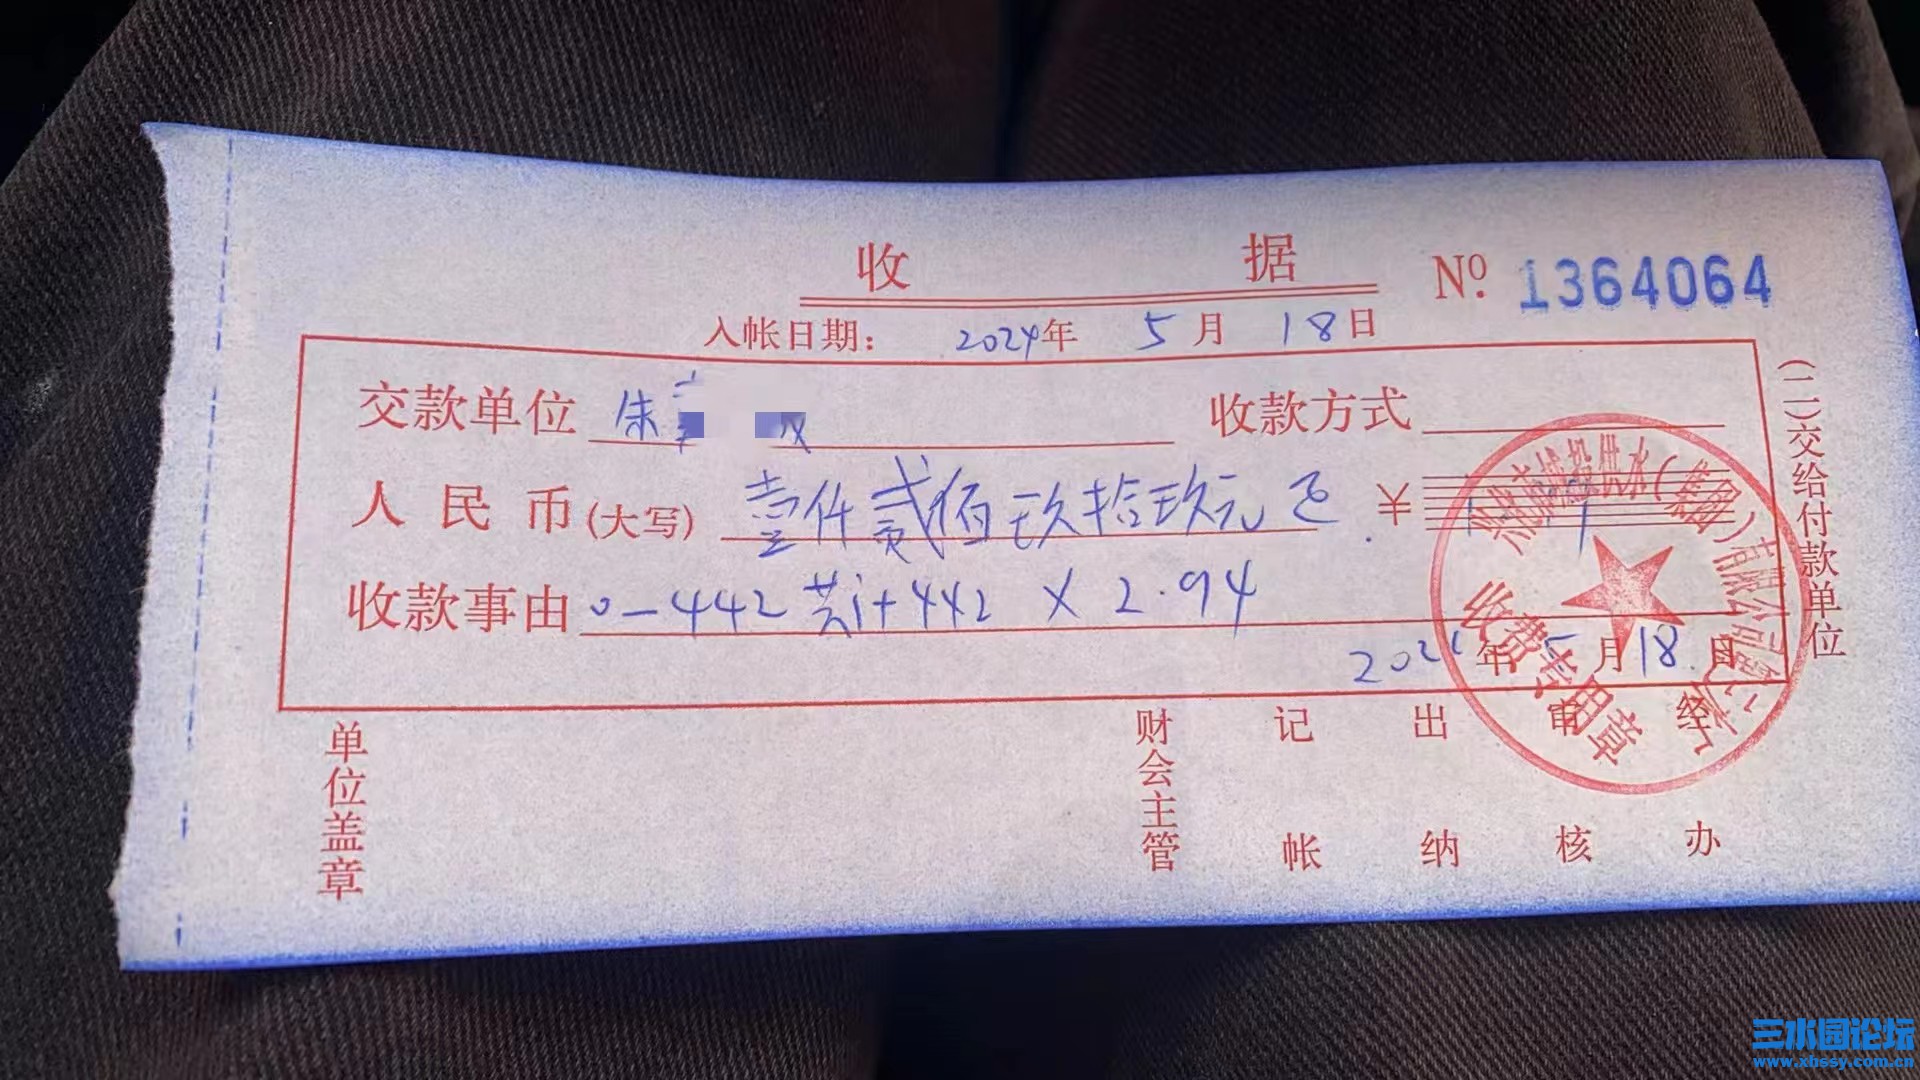 收 据 № 1364064
入帐日期： 2024年 5月 18日
交款单位 朱 收款方式
人民币(大写) 壹仟贰佰玖拾玖元 ¥
收款事由 0-442 共计442 × 2.94
年 5月18日
单位盖章 财会主管 记帐 出纳 审核 经办
(二)交给付款单位
供水(集团)有限公司
收费专用章
三水园论坛
www.xhssy.com.cn